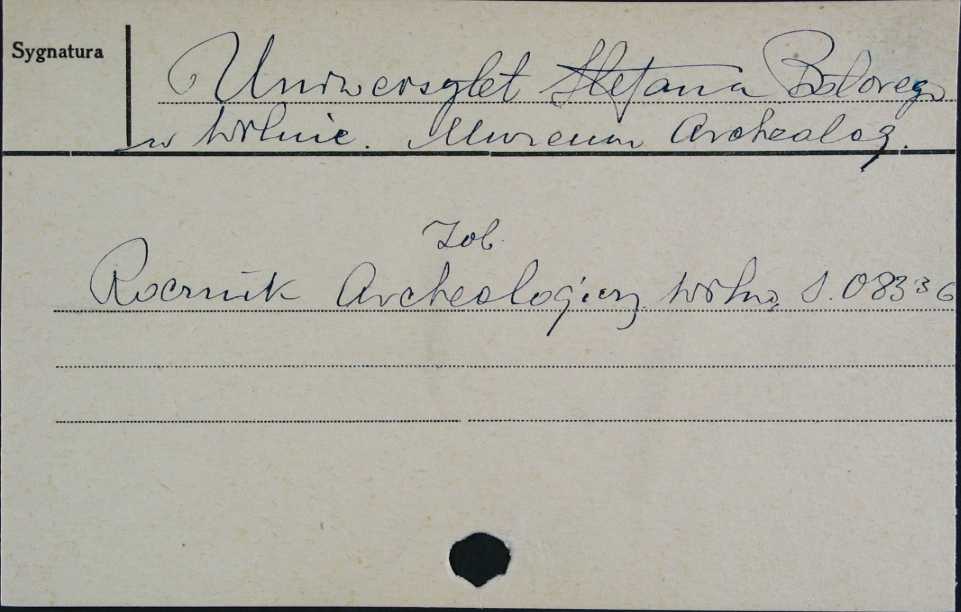 Sygnatura
Uniwersytet Stefana Batorego
w Wilnie. Muzeum Archeolog.
Zob.
Rocznik Archeologiczn. Wilno, S. 08336